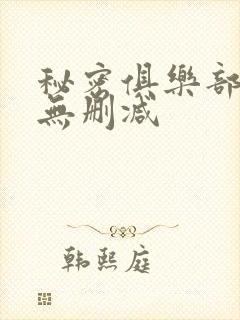 秘密俱樂部
無刪減
韩熙庭